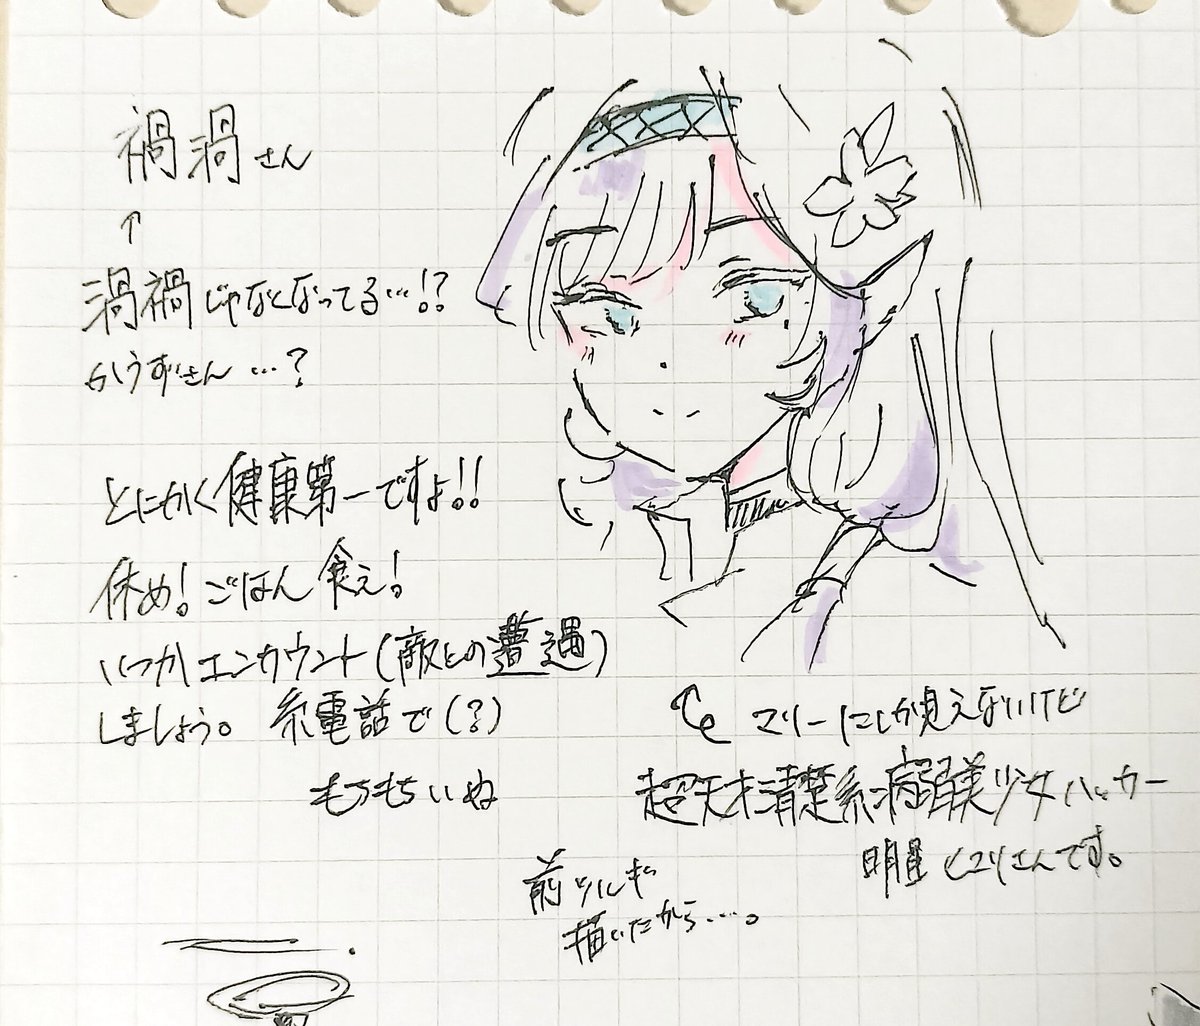 禍渦さん
↑
渦禍じゃなくなってる…!?
かうずさん…?
とにかく健康第一ですよ!!
休め!ごはん食え!
いつかエンカウント(敵との遭遇)
しましょう。糸電話で(?)
もちもちいぬ
マリーにしか見えないけど
超天才清楚系病弱美少女ハッカー
明星ヒマリさんです。
前
描いたから…。